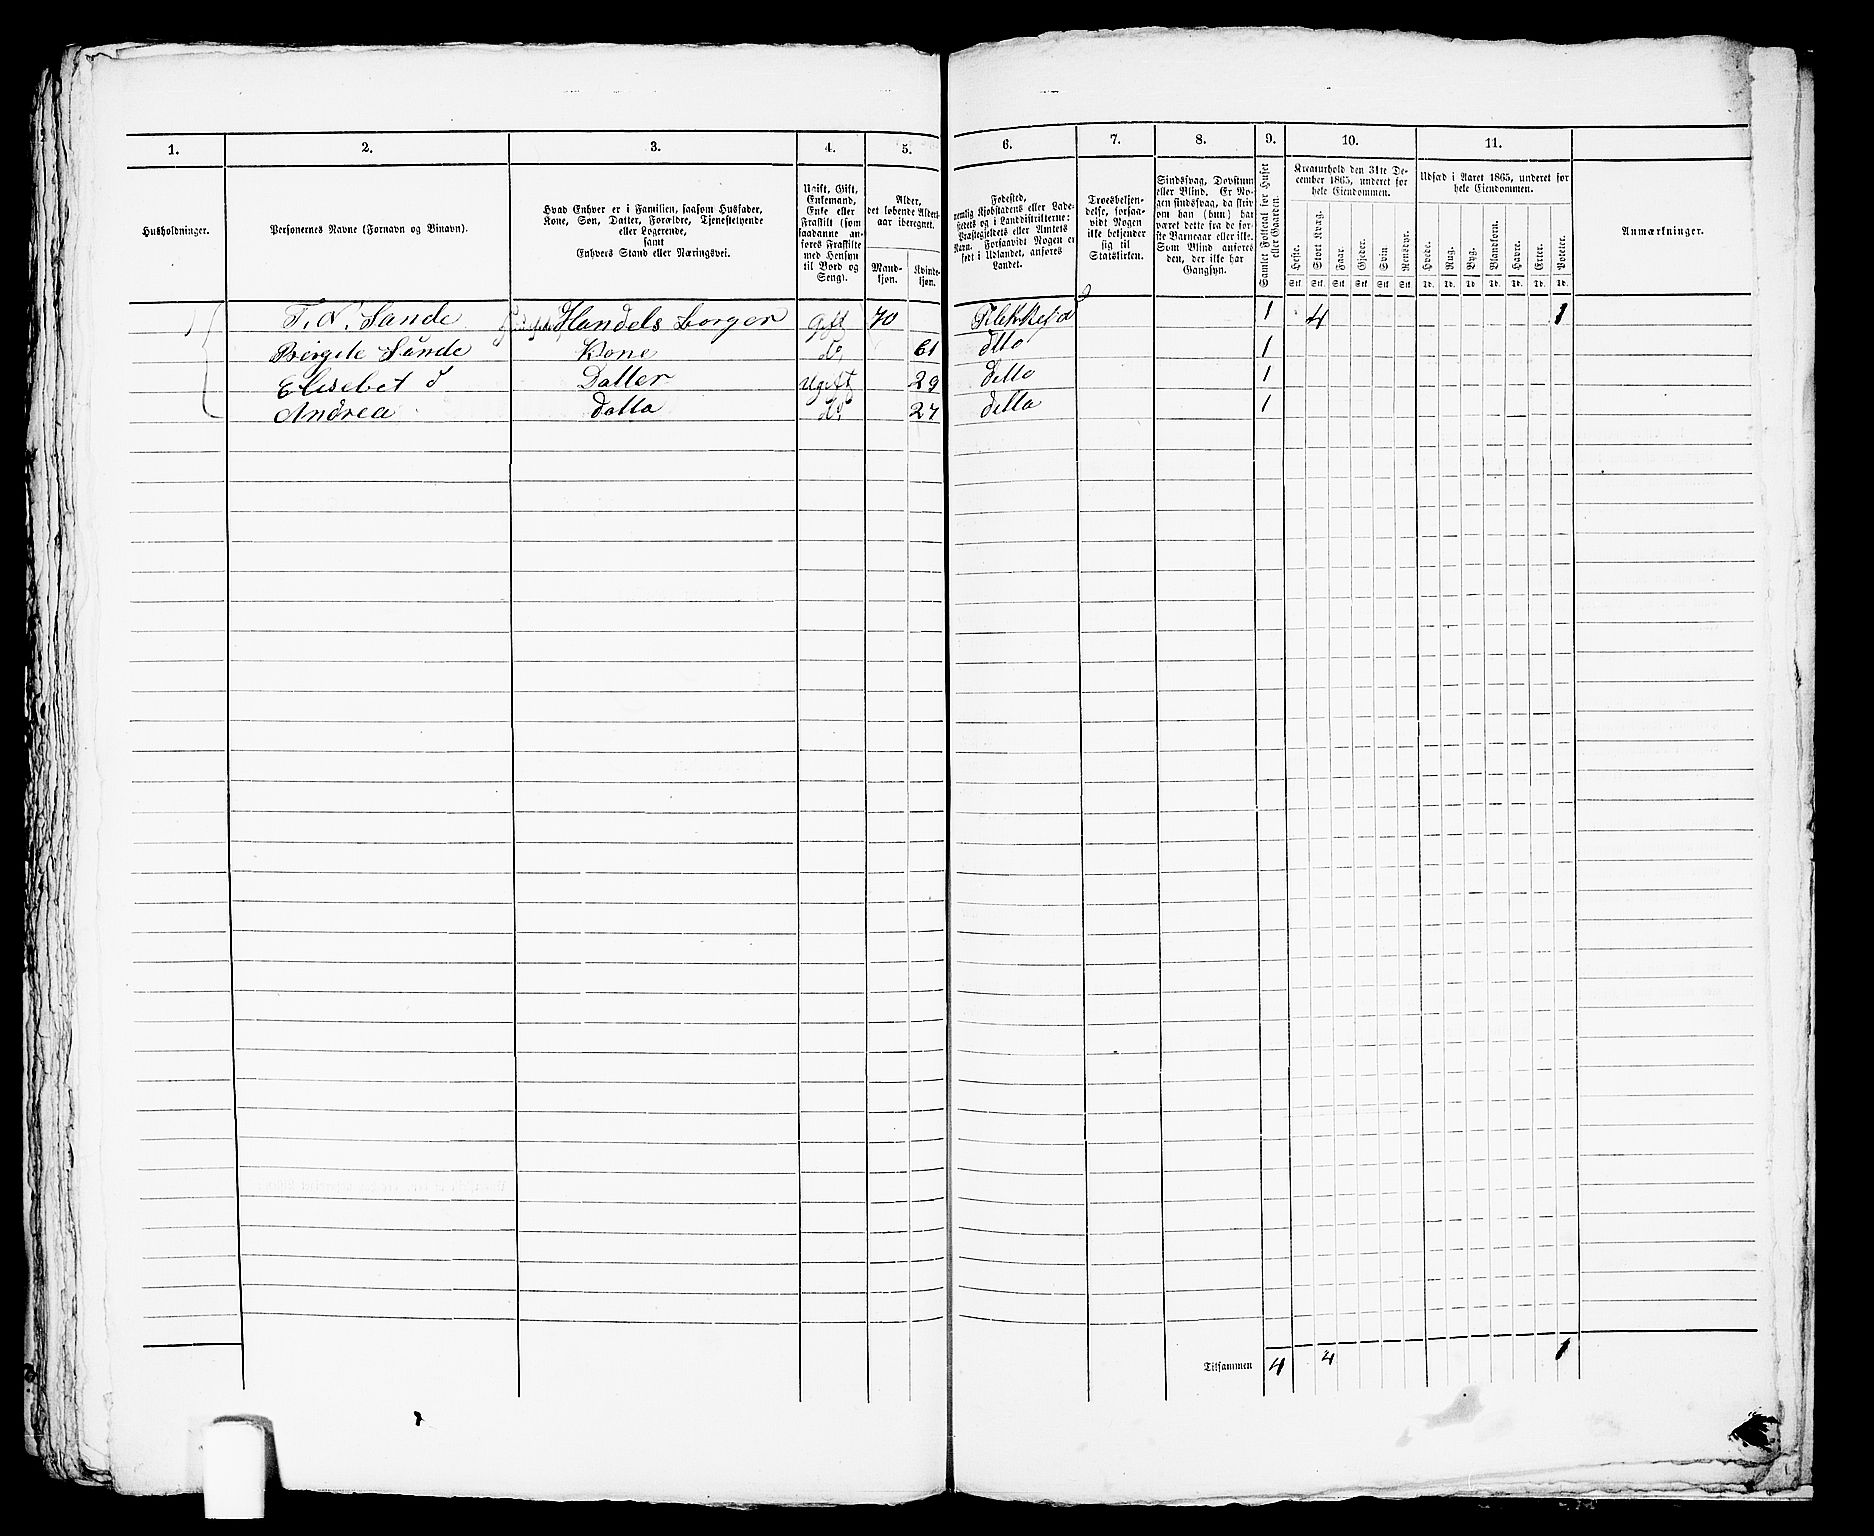 1. 2. 3. 4. 5. 6. 7. 8. 9. 10. 11.
Husholdninger.
Personernes Navne (Fornavn og Binavn).
Hvad Enhver er i Familien, saasom Husfader,
Kone, Søn, Datter, Forældre, Tjenestetyende
eller Logerende,
samt
Enhvers Stand eller Næringsvei.
Ugift, Gift,
Enkemand,
Enke eller
Fraskilt (som
saadanne an-
føres Fraskilte
med Hensyn
til Bord og
Seng).
Alder,
det løbende Alders-
aar iberegnet.
Mand-
kjøn.
Kvinde-
kjøn.
Fødested,
nemlig Kjøbstadens eller Lade-
stedets og i Landdistrikterne:
Præstegjeldets eller Amtets
Navn. Forsaavidt Nogen er
født i Udlandet, anføres
Landet.
Troesbekjen-
delse, forsaa-
vidt Nogen
ikke bekjender
sig til
Statskirken.
Sindssvag, Døvstum
eller Blind. Er No-
gen sindssvag, da skriv
om han (hun) har
været dette fra de før-
ste Barneaar eller ikke.
Som Blind anføres
den, der ikke har
Gangsyn.
Samlet Folketal for Huset
eller Gaarden.
Kreaturhold den 31te De-
cember 1865, underet for
hele Eiendommen.
Heste. Stort Kvæg. Faar. Gjeder. Svin. Rensdyr.
Stk. Stk. Stk. Stk. Stk. Stk.
Udsæd i Aaret 1865, underet for
hele Eiendommen.
Hvede. Rug. Byg. Blandkorn. Havre. Erter. Poteter.
Td. Td. Td. Td. Td. Td. Td.
Anmærkninger.
1 T. N. Sande Handels borger Gift 70 1 4 1
Birgite Sande Kone do 61 dtto 1
Elisebet d Datter Ugift 29 detto 1
Andrea datto do 27 detto 1
Tilsammen 4 4 1